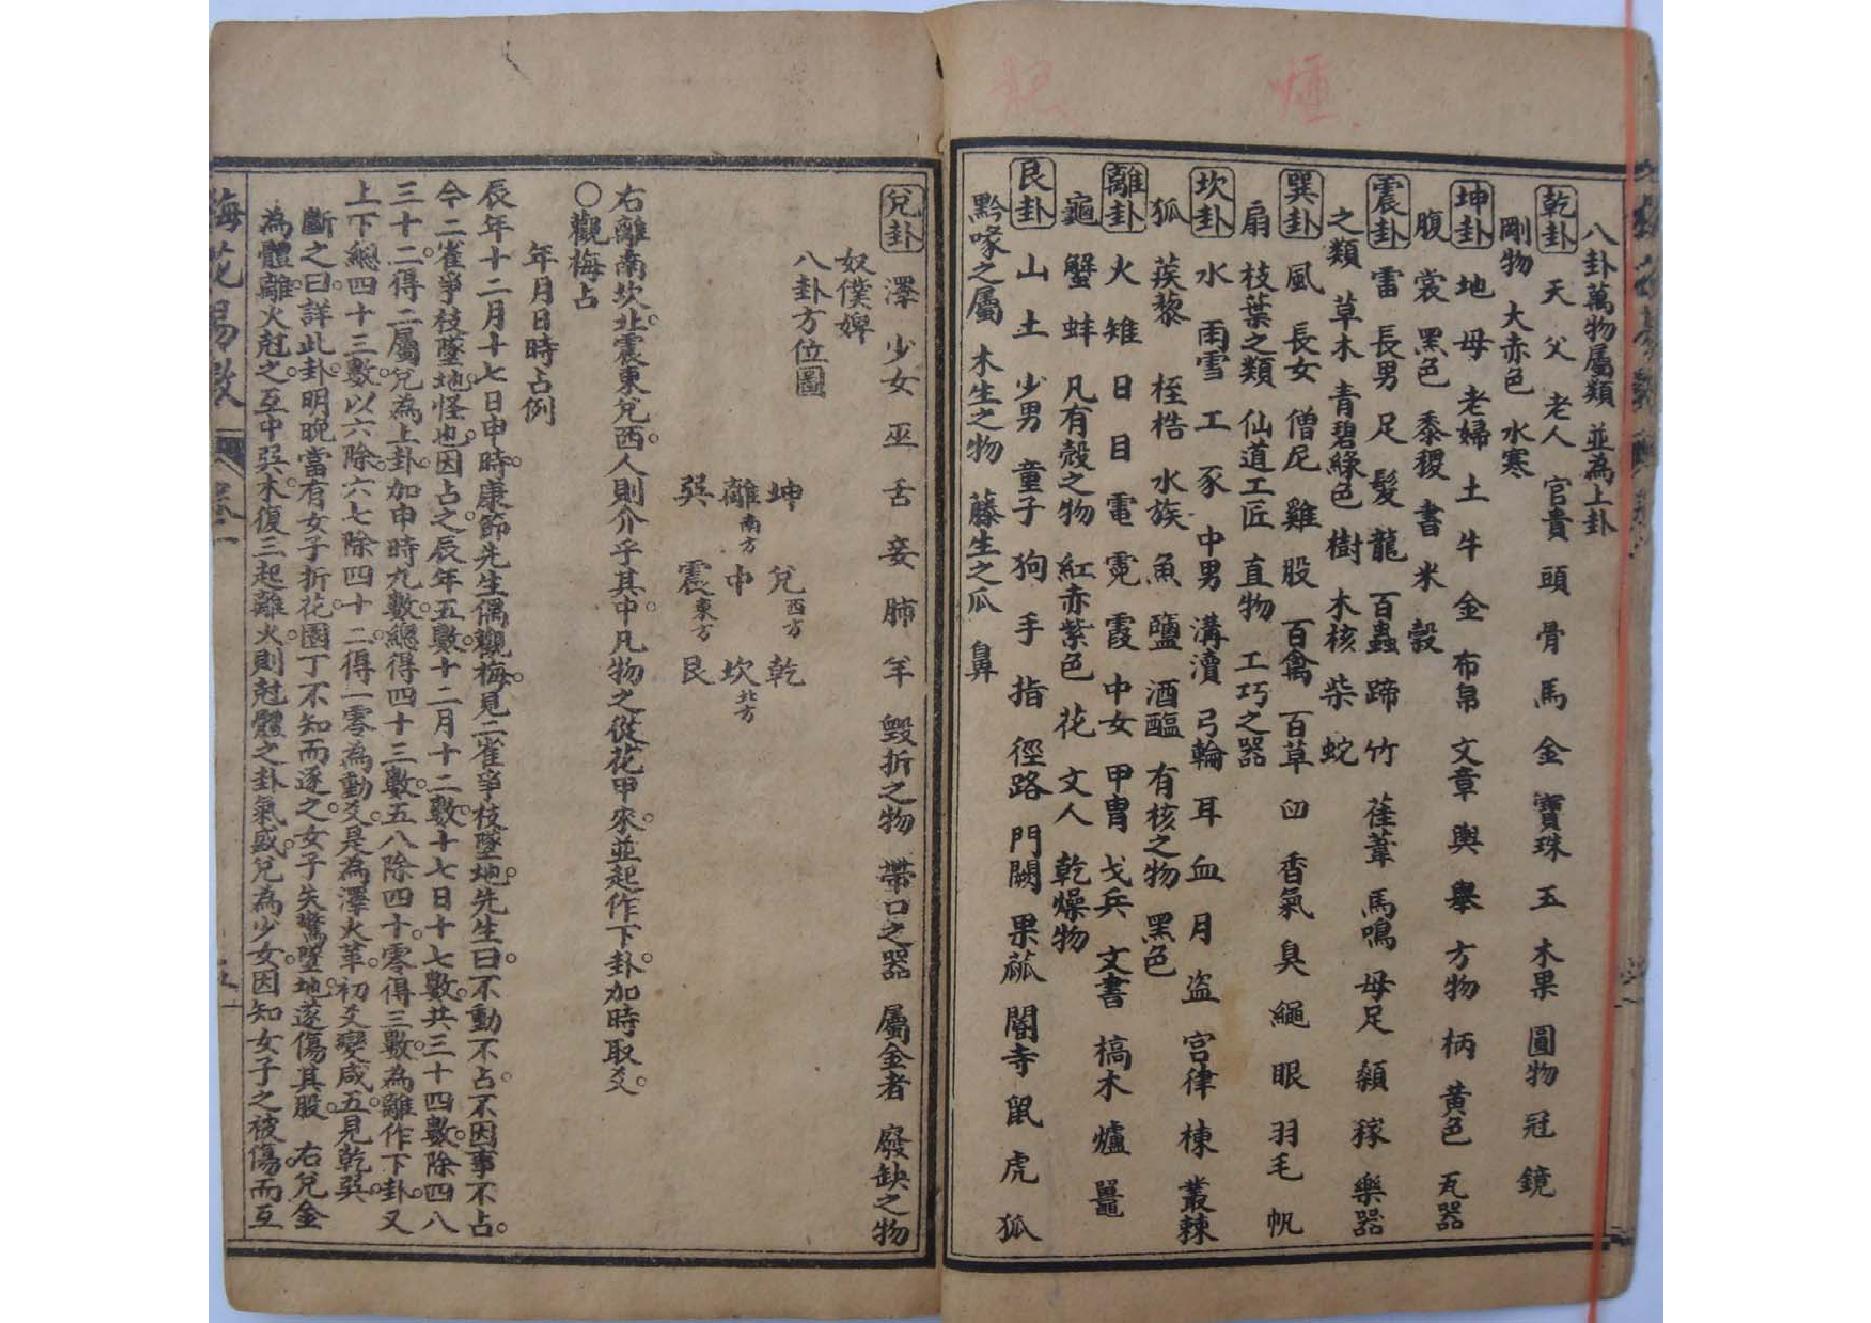 八卦萬物屬類 並為上卦
乾卦 天 父 老人 官貴 頭 骨 馬 金 寶珠 玉 木果 圓物 冠 鏡
剛物 大赤色 水寒
坤卦 地 母 老婦 土 牛 金 布帛 文章 輿 轝 方物 柄 黃色 瓦器
腹 裳 黑色 黍稷 書 米 穀
震卦 雷 長男 足 髮 龍 百蟲 蹄 竹 萑葦 馬鳴 母足 顙 稼 樂器
之類 草木 青碧綠色 樹 木核 柴 蛇
巽卦 風 長女 僧尼 雞 股 百禽 百草 臼 香氣 臭 繩 眼 羽毛 帆
扇 枝葉之類 仙道工匠 直物 工巧之器
坎卦 水 雨雪 工 豕 中男 溝瀆 弓輪 耳 血 月 盜 宮律 棟 叢棘
狐 蒺藜 桎梏 水族 魚 鹽 酒醢 有核之物 黑色
離卦 火 雉 日 目 電 霓 霞 中女 甲冑 戈兵 文書 槁木 爐 鼉
龜 蟹 蚌 凡有殼之物 紅赤紫色 花 文人 乾燥物
艮卦 山 土 少男 童子 狗 手 指 徑路 門闕 果蓏 閽寺 鼠 虎 狐
黔喙之屬 木生之物 藤生之瓜 鼻
兌卦 澤 少女 巫 舌 妾 肺 羊 毀折之物 帶口之器 屬金者 廢缺之物
奴僕婢
八卦方位圖
坤 兌西方 乾
離南方 中 坎北方
巽 震東方 艮
右離南坎北。震東兌西。人則介乎其中。凡物之從花甲來。並起作下卦。加時取爻。
○觀梅占
年月日時占例
辰年十二月十七日申時。康節先生偶觀梅。見二雀爭枝墜地。先生曰。不動不占。不因事不占。
今二雀爭枝墜地。怪也。因占之。辰年五數。十二月十二數。十七日十七數。共三十四數。除四八
三十二。得二屬兌為上卦。加申時九數。總得四十三數。五八除四十。零得三數。為離作下卦。又
上下總四十三數。以六除。六七除四十二。得一零為動爻。是為澤火革。初爻變咸。互見乾巽。
斷之曰。詳此卦。明晚當有女子折花。園丁不知而逐之。女子失驚墜地。遂傷其股。 右兌金
為體。離火尅之。互中巽木。復三起離火。則尅體之卦氣盛。兌為少女。因知女子之被傷。而互
梅花易數